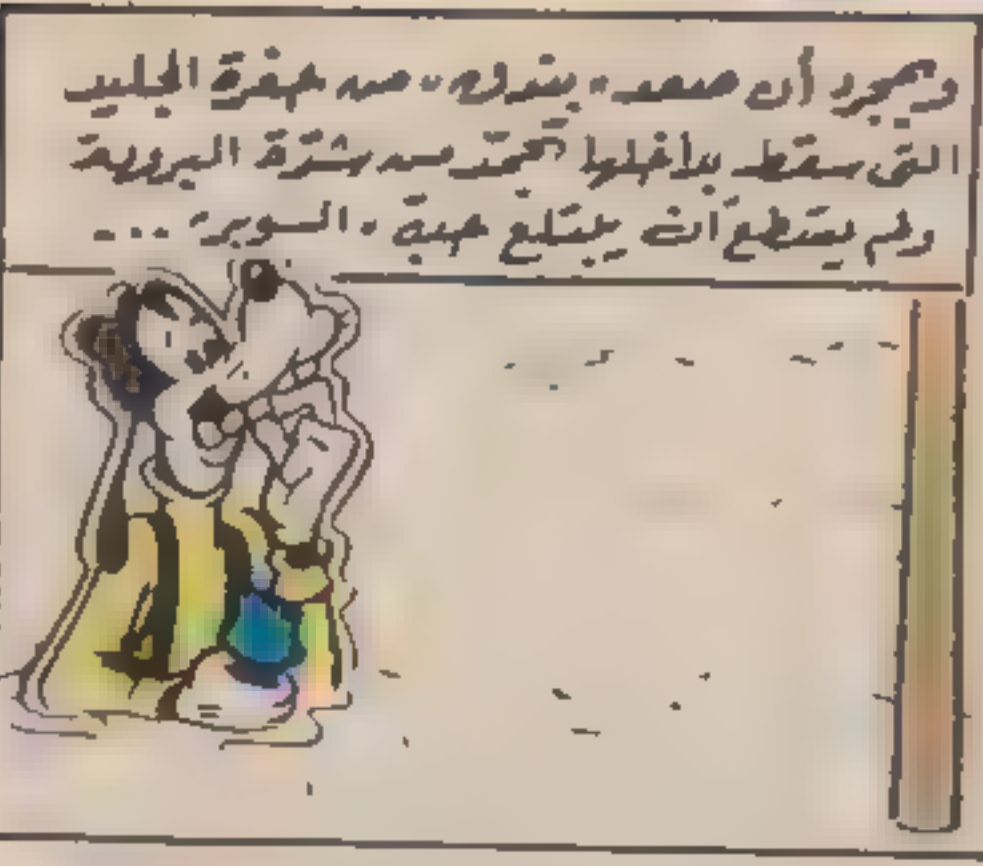 وبمجرد أن صعد " بندق " من حفرة الجليد
التى سقط بداخلها تجمّد من شدّة البرودة
ولم يستطع أن يبتلع حبة " السوبر " ...